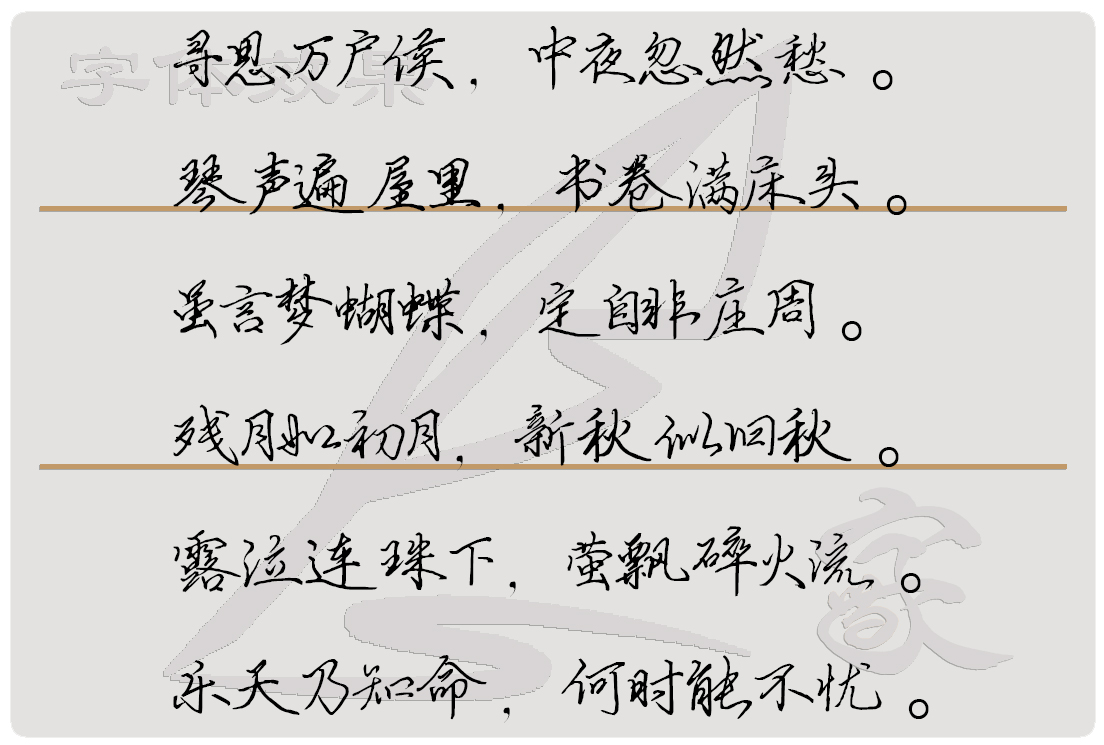 字体效果
寻思万户侯，中夜忽然愁。
琴声遍屋里，书卷满床头。
虽言梦蝴蝶，定自非庄周。
残月如初月，新秋似旧秋。
露泣连珠下，萤飘碎火流。
家
乐天乃知命，何时能不忧。